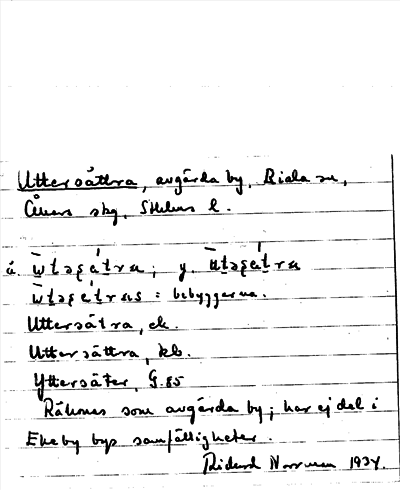 Uttersättra, avgärda by, Riala sn,
Åkers skg, Sthlms l.
Uttersätra, ek.
Uttersättra, kb.
Yttersäter, G.85
Räknas som avgärda by; har ej del i
Ekeby bys samfälligheter.
Rickard Norrman 1934.